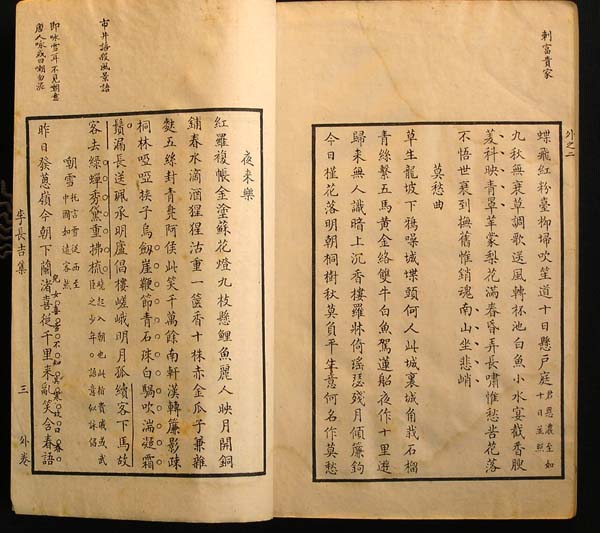 刺富貴家
外之二
蝶飛紅粉臺柳埽吹笙道十日懸戶庭
十日並照
九秋無衰草調歌送風轉杯池白魚小水宴截香腴
菱科映青罩蒙梨花滿春昏弄長嘯惟愁苦花落
不悟世衰到撫舊惟銷魂南山坐悲峭
莫愁曲
草生龍坡下鴉噪城堞頭何人此城裏城角栽石榴
青絲繫五馬黃金絡雙牛白魚駕蓮船夜作十里遊
歸來無人識暗上沉香樓羅牀倚瑤瑟殘月傾簾鉤
今日槿花落明朝桐樹秋莫負平生意何名作莫愁
市井語假風景語
即咏雪耳不見嘲意
唐人咏或曰嘲勿泥
夜來樂
紅羅複帳金塗蘇花燈九枝懸鯉魚麗人映月開銅
鋪春水滴酒猩猩沽重一篋香十株赤金瓜子兼雜
麩五絲封青阿侯此笑千萬餘南軒漢轉簾影疎
桐林啞啞挾子烏劔崖鞭節青石珠白騧吹湍凝霜
鬚漏長送珮承明廬倡樓嵯峨明月孤續客下馬故
客去綠蟬秀黛重拂梳
曉起入朝也此指貴戚或武
臣之少年。語意似詠倡
嘲雪
托言昔從西至
中國如遠客然
昨日發蔥嶺今朝下蘭渚喜從千里來亂笑含春語
李長吉集 三 外卷